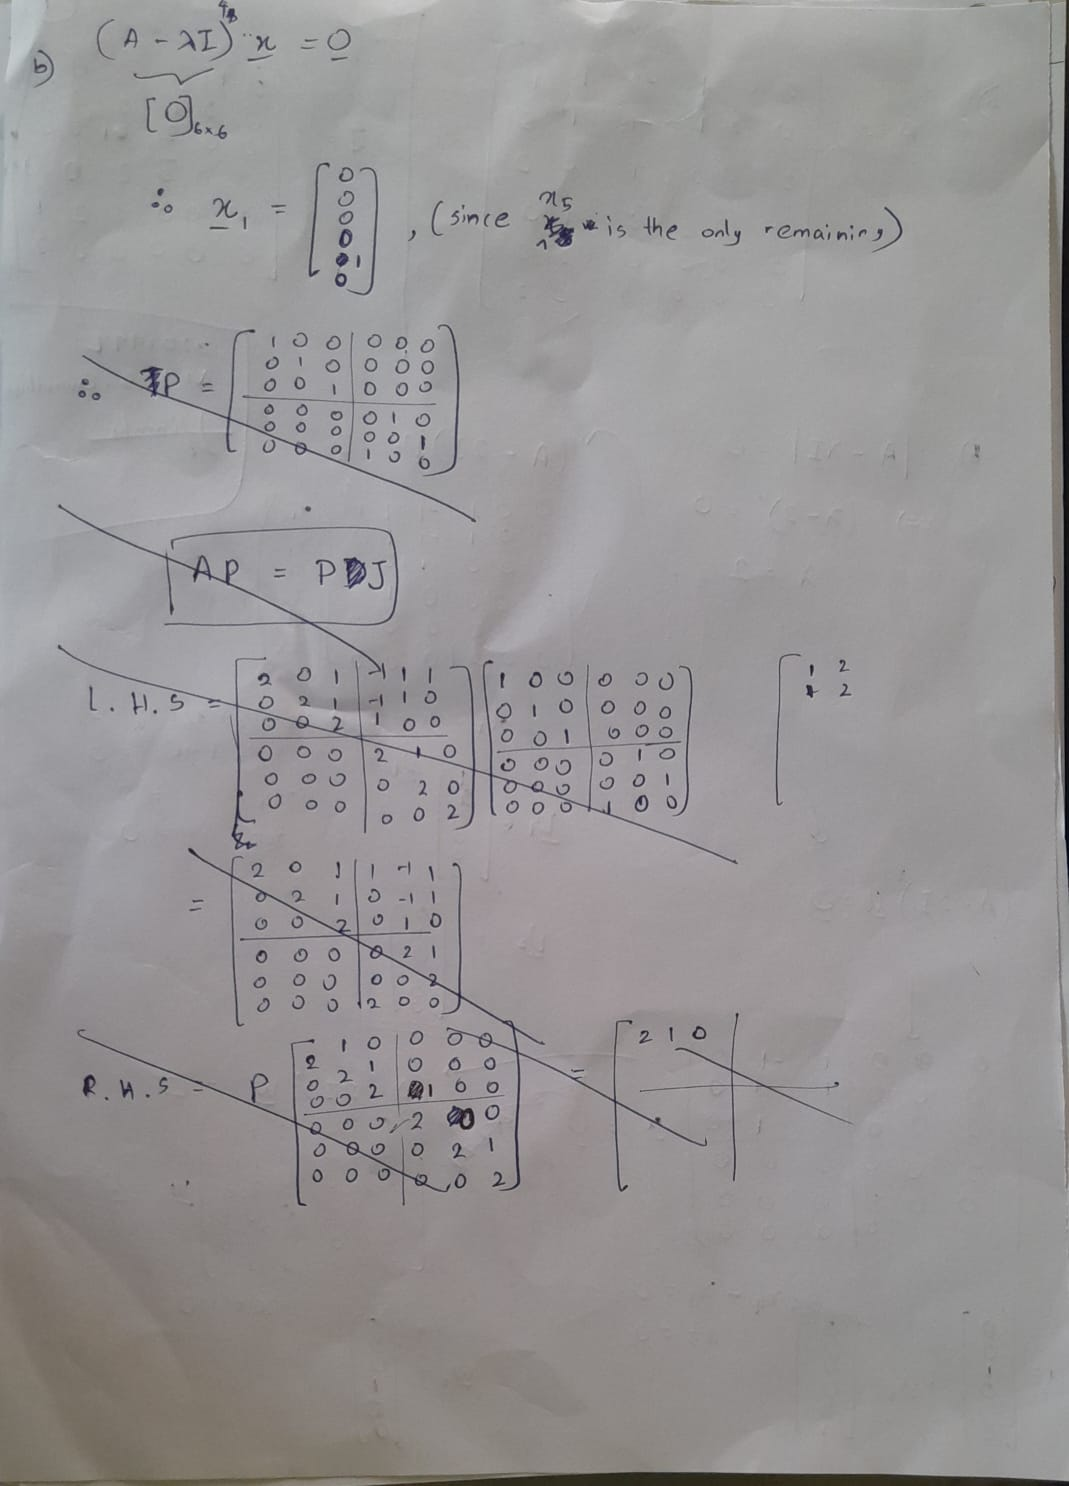 b) (A - λI)⁴ x = 0
[0]6×6
∴ x₁ = [0 0 0 0 1 0], (since x5 is the only remaining)
∴ P =
1 0 0 | 0 0 0
0 1 0 | 0 0 0
0 0 1 | 0 0 0
0 0 0 | 0 1 0
0 0 0 | 0 0 1
0 0 0 | 1 0 0
AP = PJ
L.H.S =
2 0 1 | -1 1 1    1 0 0 | 0 0 0    1 2
0 2 1 | -1 1 0    0 1 0 | 0 0 0    2
0 0 2 | 1 0 0    0 0 1 | 0 0 0
0 0 0 | 2 1 0    0 0 0 | 0 1 0
0 0 0 | 0 2 0    0 0 0 | 0 0 1
0 0 0 | 0 0 2    0 0 0 | 1 0 0
=
2 0 1 | 1 -1 1
0 2 1 | 0 -1 1
0 0 2 | 0 1 0
0 0 0 | 0 2 1
0 0 0 | 0 0 2
0 0 0 | 2 0 0
R.H.S = P
2 1 0 | 0 0 0 = 2 1 0
0 2 1 | 0 0 0
0 0 2 | 1 0 0
0 0 0 | 2 0 0
0 0 0 | 0 2 1
0 0 0 | 0 0 2